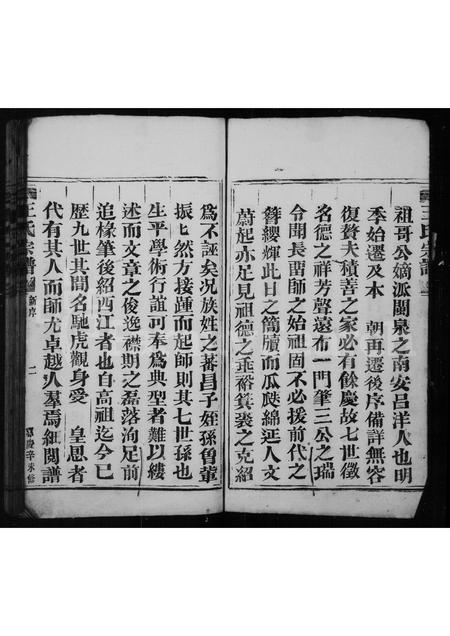 王氏宗譜
祖哥公嫡派閩泉之南安呂洋人也明
季始遷及本　朝再遷後序備詳無容
復贅夫積善之家必有餘慶故七世徵
名德之祥芳聲遠布一門筆三公之瑞
令聞長畱師之始祖固不必援前代之
簪纓輝此日之簡牘而瓜瓞綿延人文
蔚起亦足見祖德之垂裕箕裘之克紹
爲不誣矣况族姓之蕃昌子姪孫曾輩
振乚然方接踵而起師則其七世孫也
生平學術行誼可奉爲典型者難以縷
述而文章之俊逸襟期之磊落洵足前
追椽筆後紹西江者也自高祖迄今已
歷九世其間名馳虎觀身愛　皇恩者
代有其人而師尤卓越人羣焉細閲譜
王氏宗譜　新序　二　嘉慶辛未修